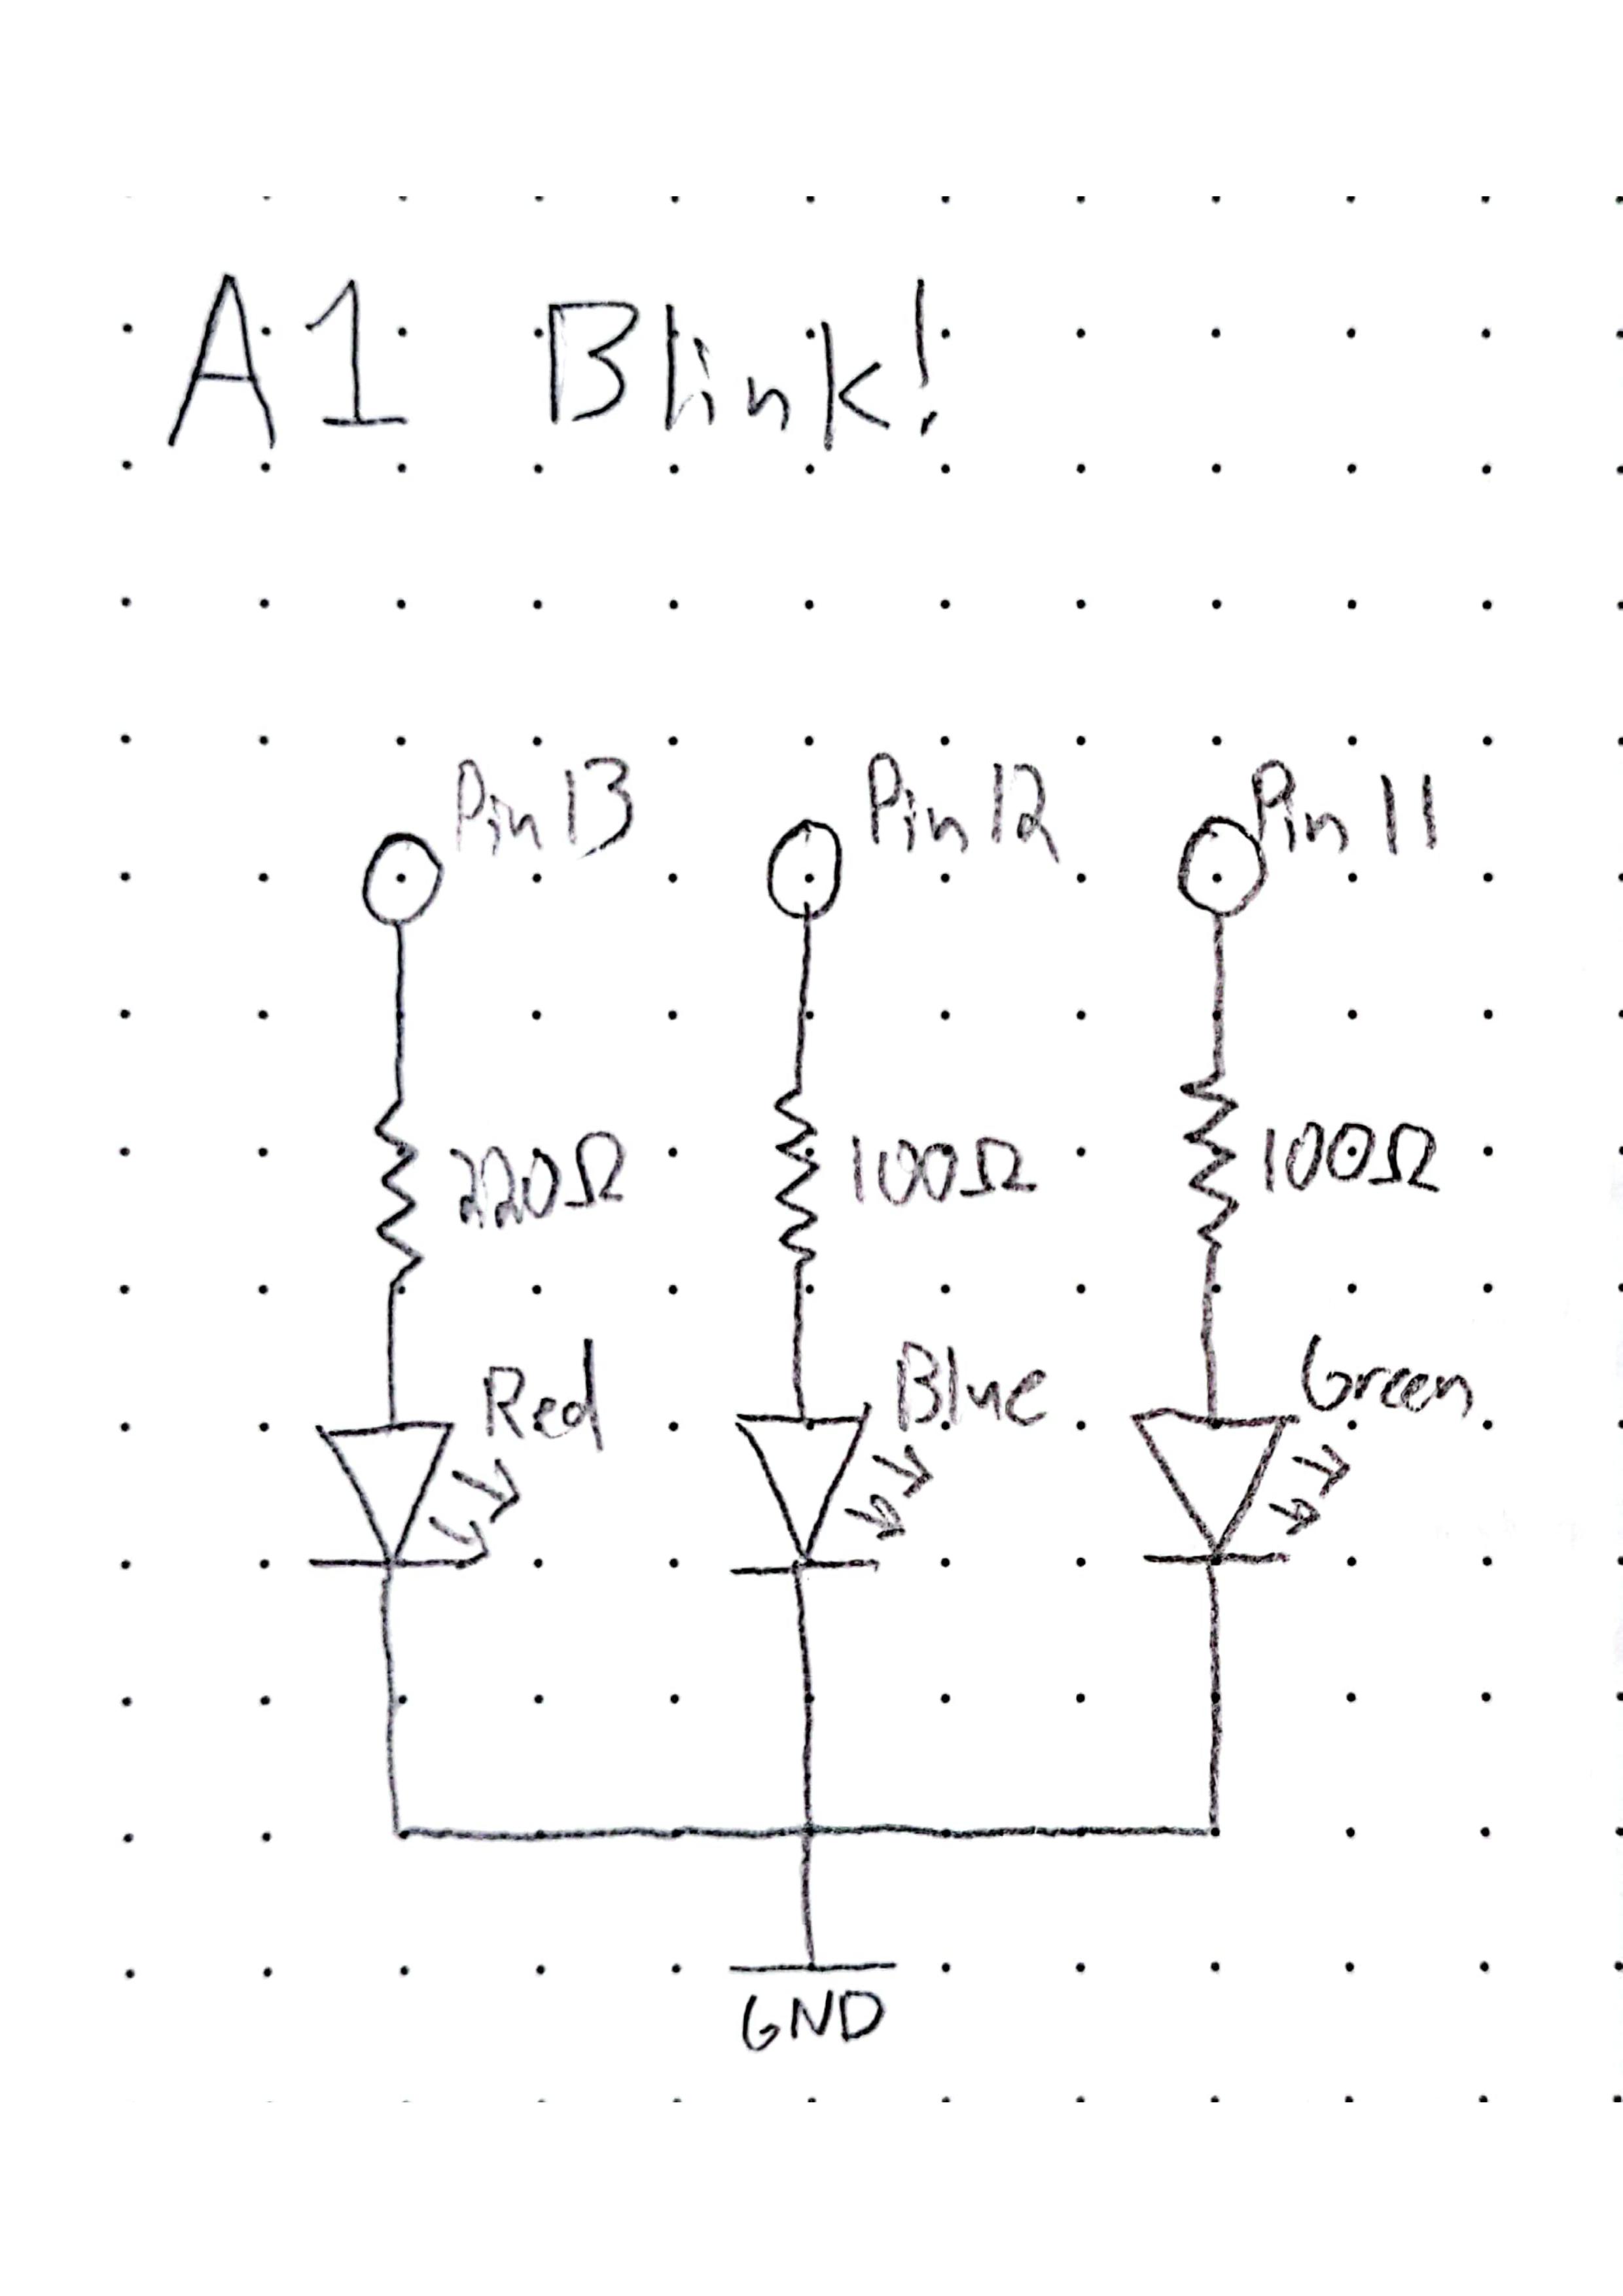 A1 Blink!
Pin 13 Pin 12 Pin 11
220Ω 100Ω 100Ω
Red Blue Green
GND